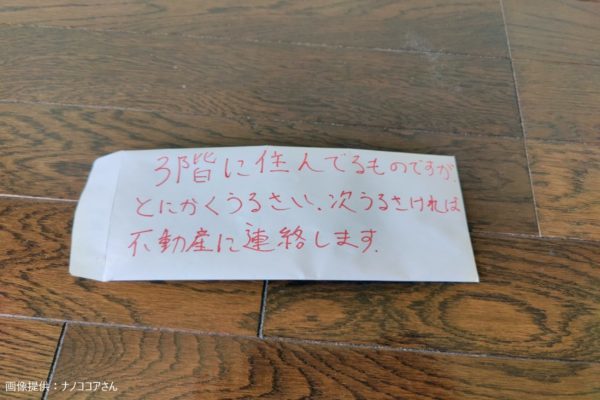 3階に住んでるものですが、
とにかくうるさい、次うるさければ
不動産に連絡します.
画像提供：ナノココアさん